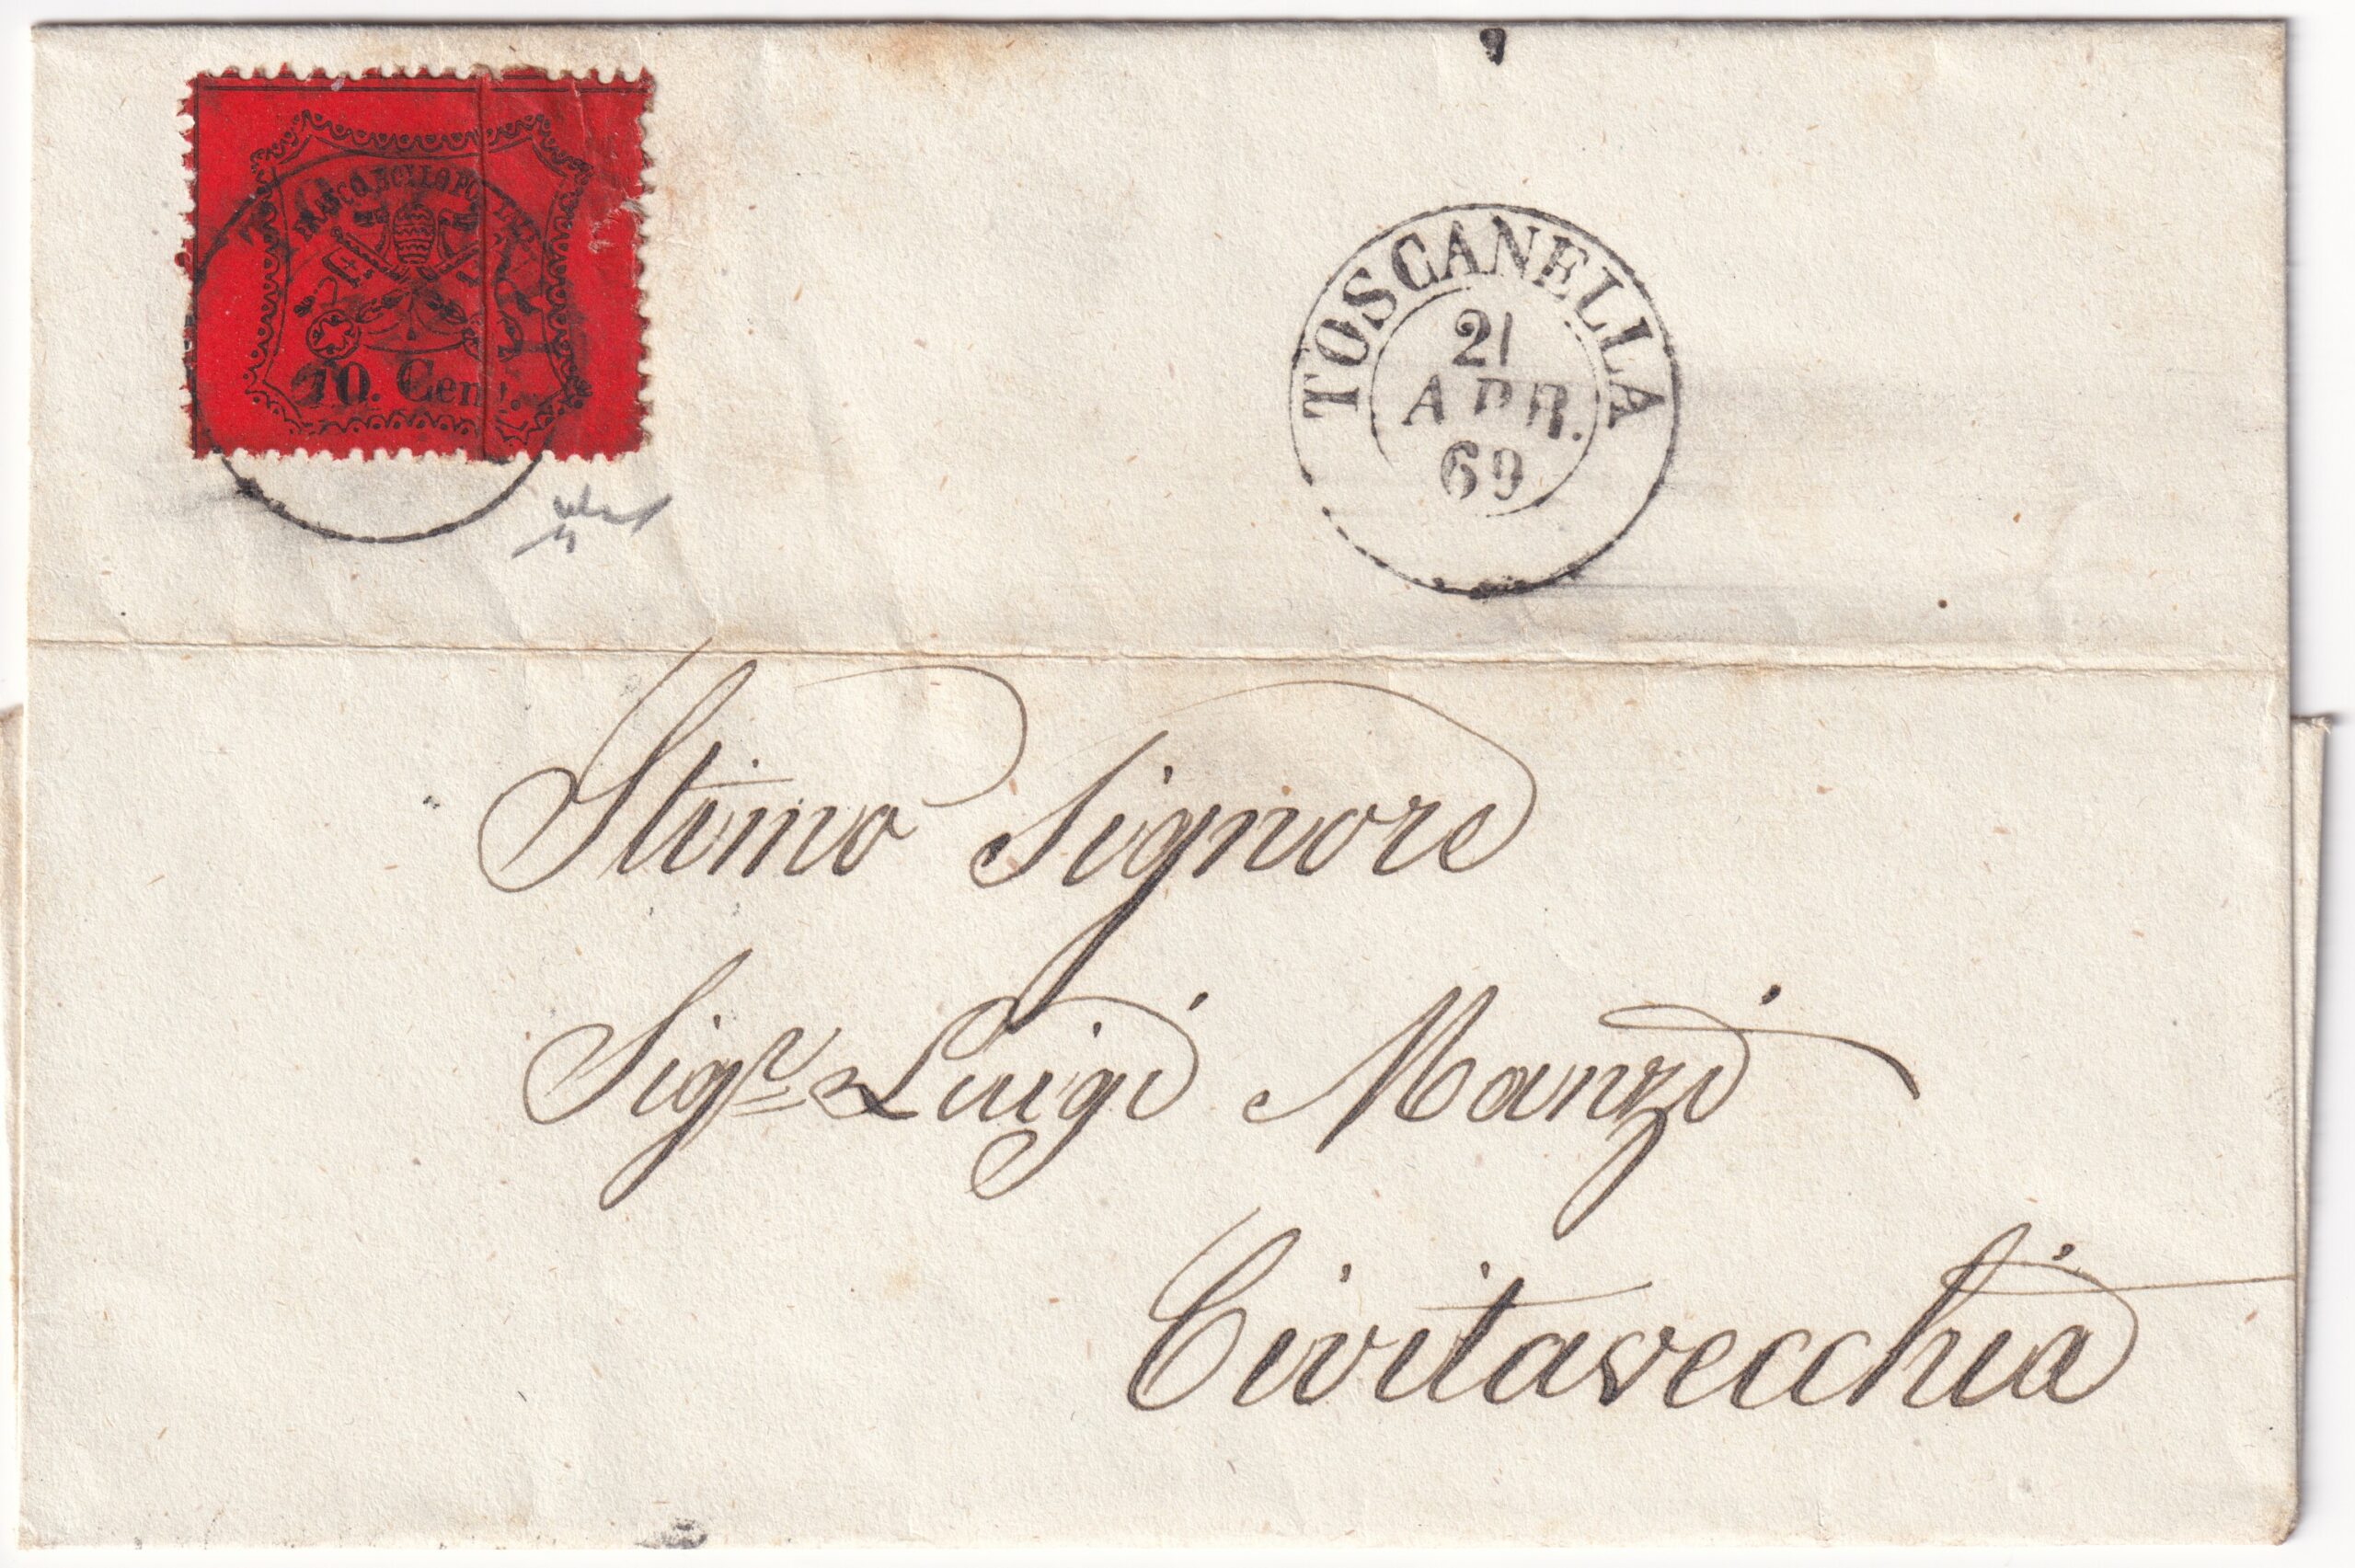 FRANCO BOLLO POSTALE
10. Cent.
TOSCANELLA
21
APR.
69
Stimo Signore
Sigr Luigi Manzi
Civitavecchia